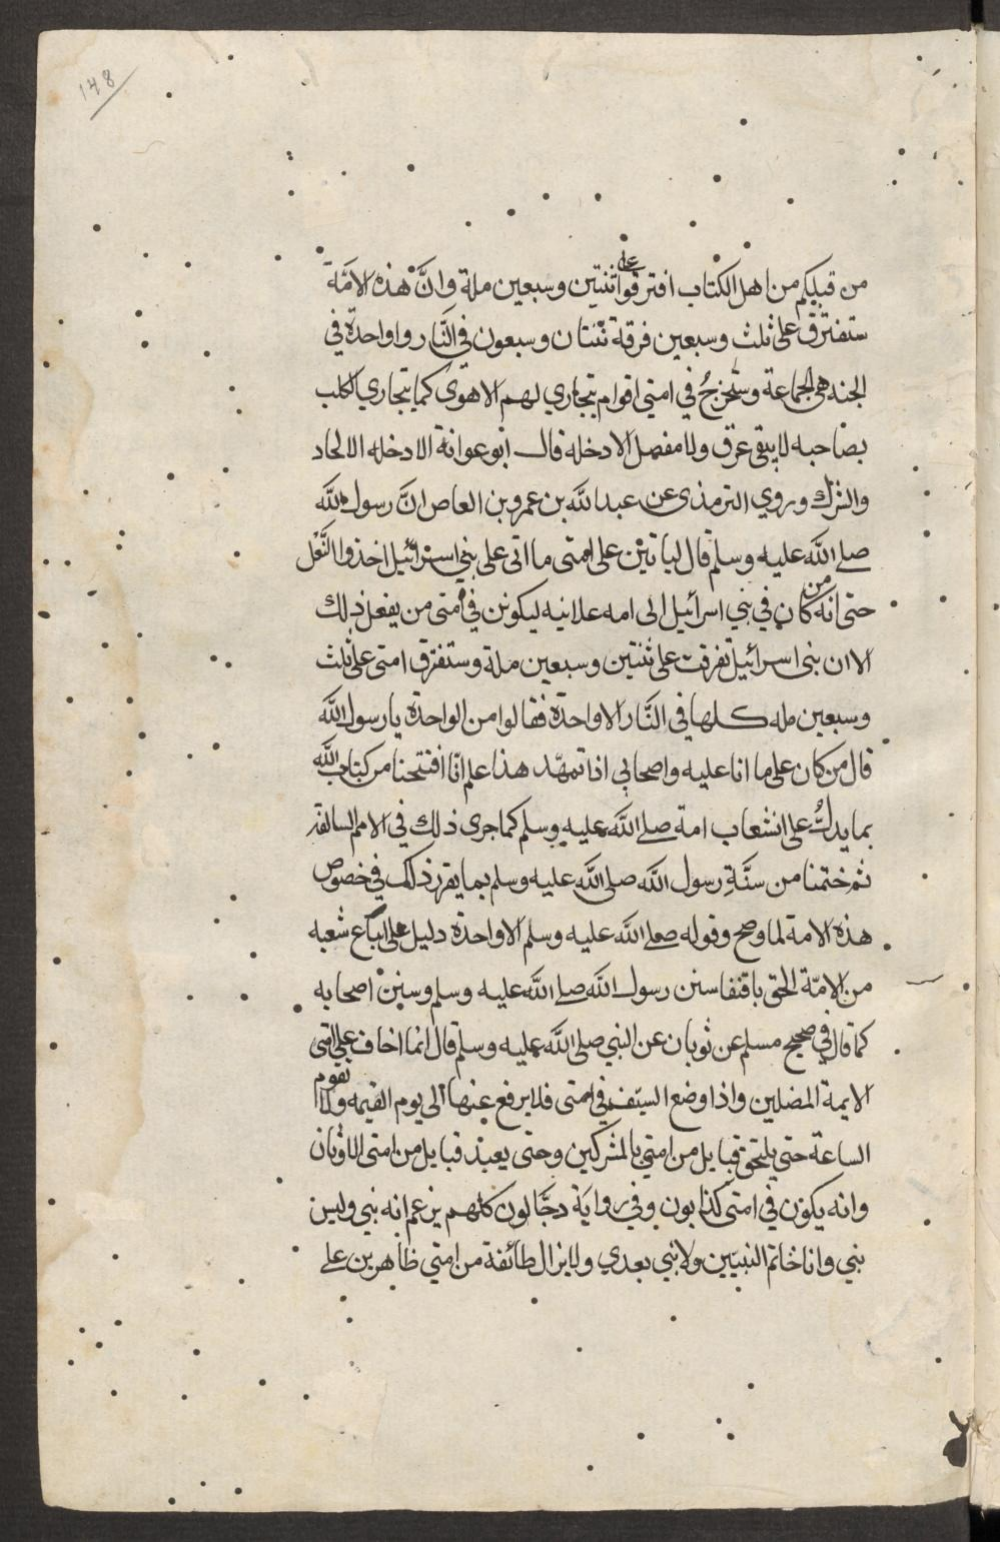 148
من قبلكم من اهل الكتاب افترقوا على اثنتين وسبعين ملة وانَّ هذه الامَّة
ستفترق على ثلث وسبعين فرقة ثنتان وسبعون في النَّار وواحدة في
الجنه هى الجماعة وستخرجُ في امتى اقوام تجارى لهم الاهوى كما يتجارى الكلب
بصاحبه لا يبقى عرق ولا مفصل الا دخله قال ابو عوانة الا دخله الالحاد
والشرك وروي الترمذى عن عبد اللَّه بن عمرو بن العاص انَّ رسول اللَّه
صلى اللَّه عليه وسلم قال لياتين على امتى ما اتى على بني اسرائيل اخذوا النَّعْل
حتى انه كان من في بني اسرائيل الى امه علانيه ليكونن في امتى من يفعل ذلك
الا ان بنى اسرائيل تفرقت على ثنتين وسبعين ملة وستفترق امتى على ثلث
وسبعين مله كلها في النَّار الا واحدة فقالوا من الواحدة يا رسول اللَّه
قال من كان على ما انا عليه واصحابي اذا تمهّد هذا علم انّا افتتحنا من كتاب اللَّه
بما يدلُّ على انشعاب امة صلى اللَّه عليه وسلم كما جرى ذلك في الامم السالفة
ثم ختمنا من سنَّةِ رسول اللَّه صلى اللَّه عليه وسلم بما يقرر ذلك في خصوص
هذه الامة لما وضح وقوله صلى اللَّه عليه وسلم الا واحدة دليل على اتباع شعبه
من الامّة الحق باقتفا سنن رسول اللَّه صلى اللَّه عليه وسلم وسنن اصحابه
كما قال في صحيح مسلم عن ثوبان عن النبي صلى اللَّه عليه وسلم قال انما اخاف على امتى
الايمة المضلين واذا وضع السيف في امتى فلا يرفع عنها الى يوم القيمه ولا تقوم
الساعة حتي يلتحق قبايل من امتي بالمشركين وحتى يعبد قبايل من امتى الاوثان
وانه يكون في امتى كذابون وفي رواية دجَّالون كلهم يزعم انه نبي وليس
بني وانا خاتم النبيّين ولا نبي بعدي ولا يزال طائفة من امتي ظاهرين على